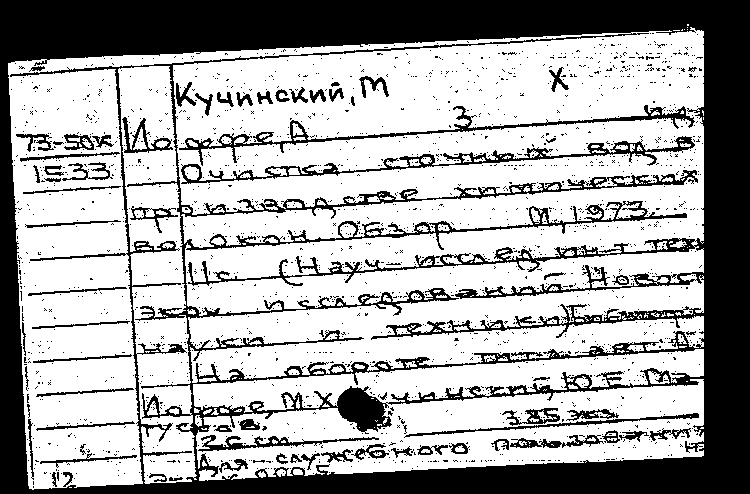 Кучинский, М Х
73-50к Иоффе, А З и др
1533 Очистка сточных вод в
производстве химических
волокон. Обзор М, 1973.
11с. (Науч.-исслед ин-т техн
экон. исследований Новост
науки и техники)
На обороте тит.л. авт: А.
Иоффе, М.Х Кучинский, Ю Е Ма
тусков.
26 cm 385 экз
Для служебного пользования
12